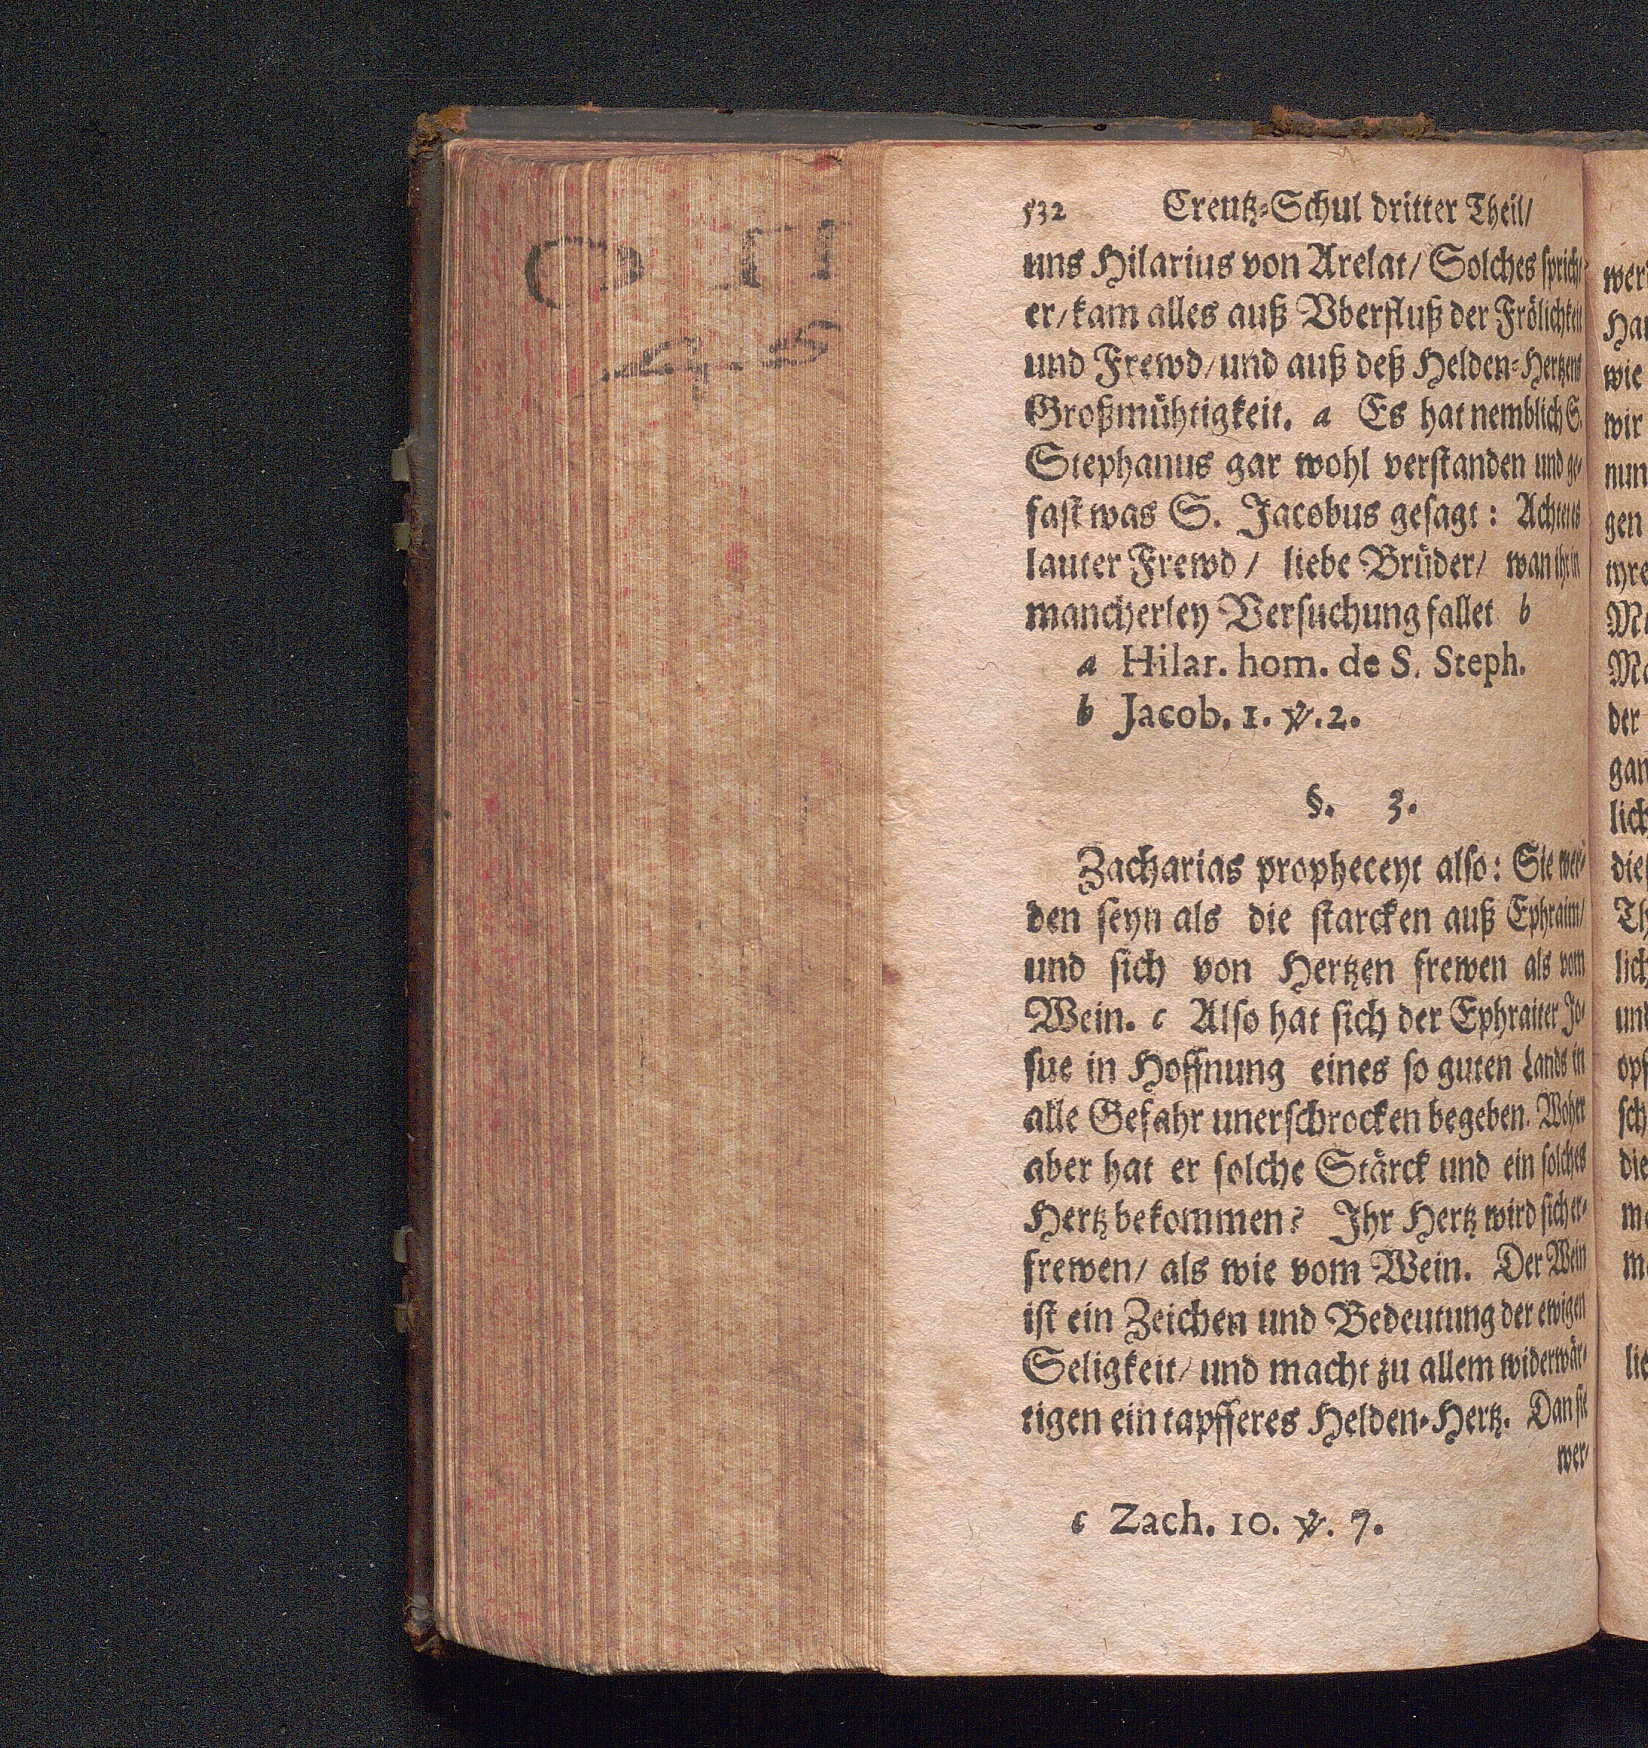 532 Creutz-Schul dritter Theil/
uns Hilarius von Arelat/ Solches spricht
er/ kam alles auß Vberfluß der Frölichkeit
und Frewd/ und auß deß Helden-Hertzens
Großmühtigkeit. a Es hat nemblich S.
Stephanus gar wohl verstanden und ge-
fast was S. Jacobus gesagt: Achtet es
lauter Frewd/ liebe Brüder/ wan ihr in
mancherley Versuchung fallet b
a Hilar. hom. de S. Steph.
b Jacob. 1. ℣. 2.
§. 3.
Zacharias propheceyt also: Sie wer-
den seyn als die starcken auß Ephraim/
und sich von Hertzen frewen als vom
Wein. c Also hat sich der Ephraiter Jo-
sue in Hoffnung eines so guten Lands in
alle Gefahr unerschrocken begeben. Woher
aber hat er solche Stärck und ein solches
Hertz bekommen? Ihr Hertz wird sich er-
frewen/ als wie vom Wein. Der Wein
ist ein Zeichen und Bedeutung der ewigen
Seligkeit/ und macht zu allem widerwär-
tigen ein tapfferes Helden-Hertz. Dan sie
wer-
c Zach. 10. ℣. 7.